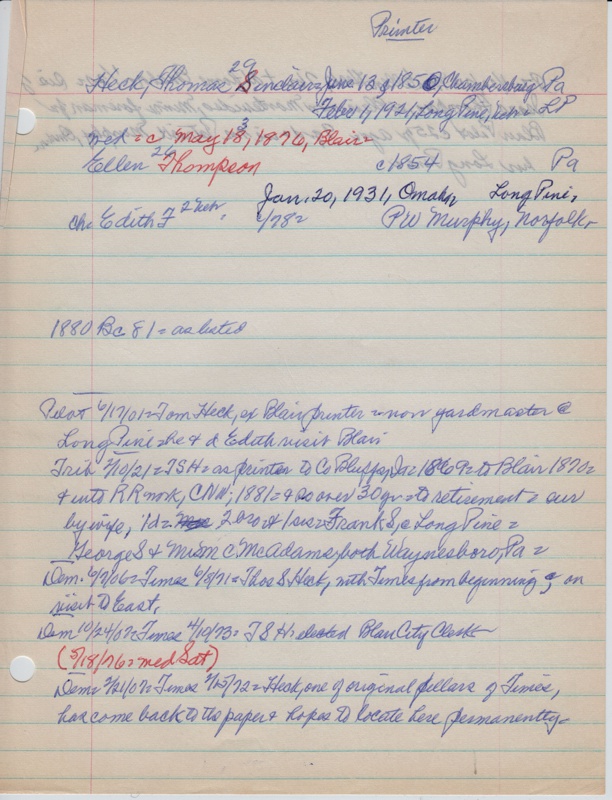 Printer
Heck, Thomas 29 Sindair = June 13, 1850, Chambersburg Pa
Feb 1, 1921, Long Pine, = LP
med = c May 18, 1876, Blair =
Ellen 26 Thompson c1854 Pa
Jan. 20, 1931, Omaha Long Pine,
ch. Edith F 2 Neb. 1/78 = PW Murphy, Norfolk
1880 Bc 81 = as listed
Pilot 6/17/01 = Tom Heck, ex Blair printer = now yardmaster @
Long Pine = he & d Edith visit Blair
Trib 2/10/21 = TSH = as printer to Co Bluffs, Ia = 1869 = to Blair 1870 =
& into RR work, CNW, 1881 = & so over 30 yr = to retirement = sur
by wife, 1d = 2 bro & 1 sis = Frank S, @ Long Pine =
George S & Mrs M C McAdams, both Waynesboro, Pa =
Dem. 6/7/06 = Times 6/8/71 = Thos S. Heck, with Times from beginning, on
visit to East.
Dem 10/24/07 = Times 4/10/73 = T S H elected Blair City Clerk
(5/18/76 = med Sat)
Dem = 2/21/07 = Times 2/15/72 = Heck, one of original pillars of Times,
has come back to the paper & hopes to locate here permanently =